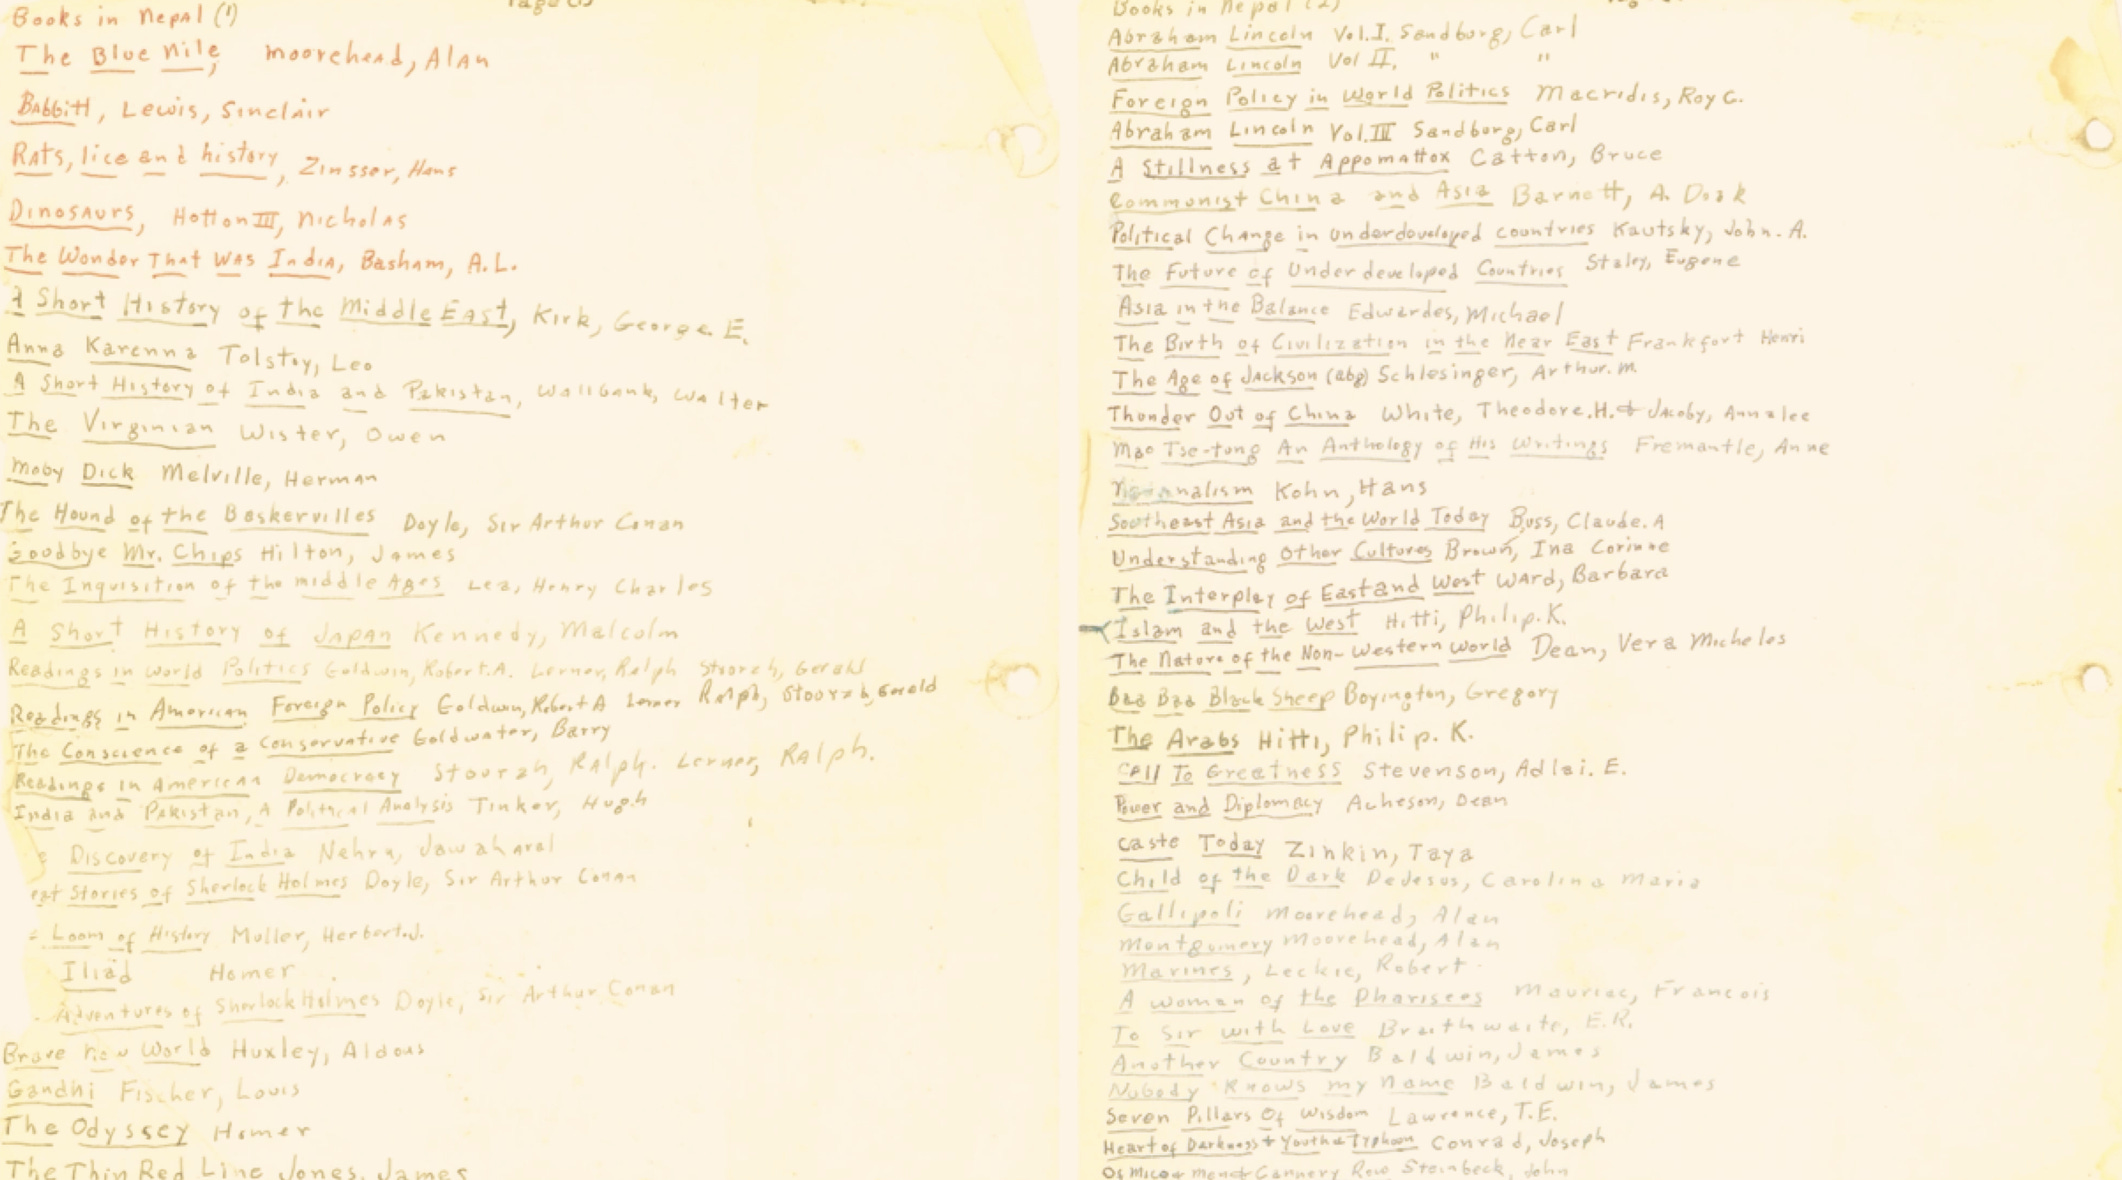 Books in Nepal (1)
The Blue Nile, Moorehead, Alan
Babbitt, Lewis, Sinclair
Rats, lice and history, Zinsser, Hans
Dinosaurs, Hotton III, Nicholas
The Wonder That Was India, Basham, A.L.
A Short History of the Middle East, Kirk, George E.
Anna Karenna Tolstoy, Leo
A Short History of India and Pakistan, Wallbank, Walter
The Virginian Wister, Owen
Moby Dick Melville, Herman
The Hound of the Baskervilles Doyle, Sir Arthur Conan
Goodbye Mr. Chips Hilton, James
The Inquisition of the middle Ages Lea, Henry Charles
A Short History of Japan Kennedy, Malcolm
Readings in World Politics Goldwin, Robert.A. Lerner, Ralph Storzh, Gerald
Readings in American Foreign Policy Goldwin, Robert A Lerner Ralph, Stoorzh, Gerald
The Conscience of a Conservative Goldwater, Barry
Readings in American Democracy Stourzh, Ralph. Lerner, Ralph.
India and Pakistan, A Political Analysis Tinker, Hugh
Discovery of India Nehru, Jawaharal
eat Stories of Sherlock Holmes Doyle, Sir Arthur Conan
Loom of History Muller, Herbert.J.
Iliad Homer
Adventures of Sherlock Holmes Doyle, Sir Arthur Conan
Brave new World Huxley, Aldous
Gandhi Fischer, Louis
The Odyssey Homer
The Thin Red Line Jones, James
Books in Nepal (2)
Abraham Lincoln Vol.I. Sandburg, Carl
Abraham Lincoln Vol II, " "
Foreign Policy in World Politics Macridis, Roy C.
Abraham Lincoln Vol.III Sandborg, Carl
A Stillness at Appomattox Catton, Bruce
Communist China and Asia Barnett, A. Doak
Political Change in underdeveloped countries Kautsky, John.A.
The Future of Underdeveloped Countries Staley, Eugene
Asia in the Balance Edwardes, Michael
The Birth of Civilization in the Near East Frankfort Henri
The Age of Jackson (abg) Schlesinger, Arthur.M.
Thunder Out of China White, Theodore.H. & Jacoby, Annalee
Mao Tse-tung An Anthology of His Writings Fremantle, Anne
Nationalism Kohn, Hans
Southeast Asia and the World Today Buss, Claude.A
Understanding Other Cultures Brown, Ina Corinne
The Interplay of East and West Ward, Barbara
Islam and the West Hitti, Philip.K.
The Nature of the Non-Western World Dean, Vera Micheles
Baa Baa Black Sheep Boyington, Gregory
The Arabs Hitti, Philip. K.
Call To Greatness Stevenson, Adlai. E.
Power and Diplomacy Acheson, Dean
Caste Today Zinkin, Taya
Child of the Dark DeJesus, Carolina Maria
Gallipoli Moorehead, Alan
Montgomery Moorehead, Alan
Marines, Leckie, Robert
A woman of the Pharisees Mauriac, Francois
To Sir with Love Braithwaite, E.R.
Another Country Baldwin, James
Nobody Knows my Name Baldwin, James
Seven Pillars Of Wisdom Lawrence, T.E.
Heart of Darkness + Youth & Typhoon Conrad, Joseph
Of Mice & men & Cannery Row Steinbeck, John